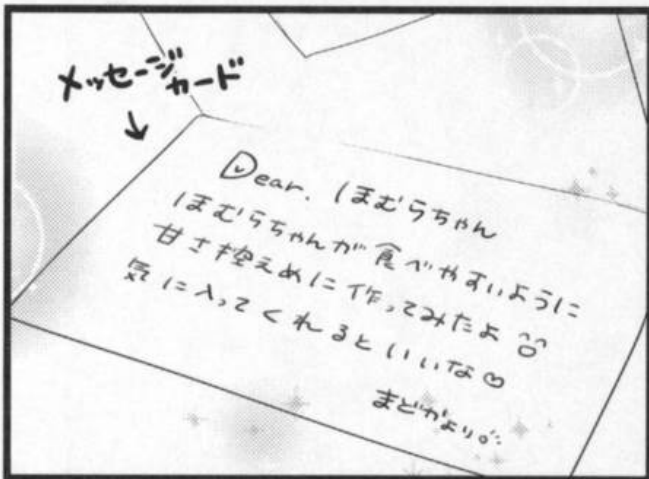 メッセージカード
Dear. ほむらちゃん
ほむらちゃんが食べやすいように
甘さ控えめに作ってみたよ
気に入ってくれるといいな♡
まどかより